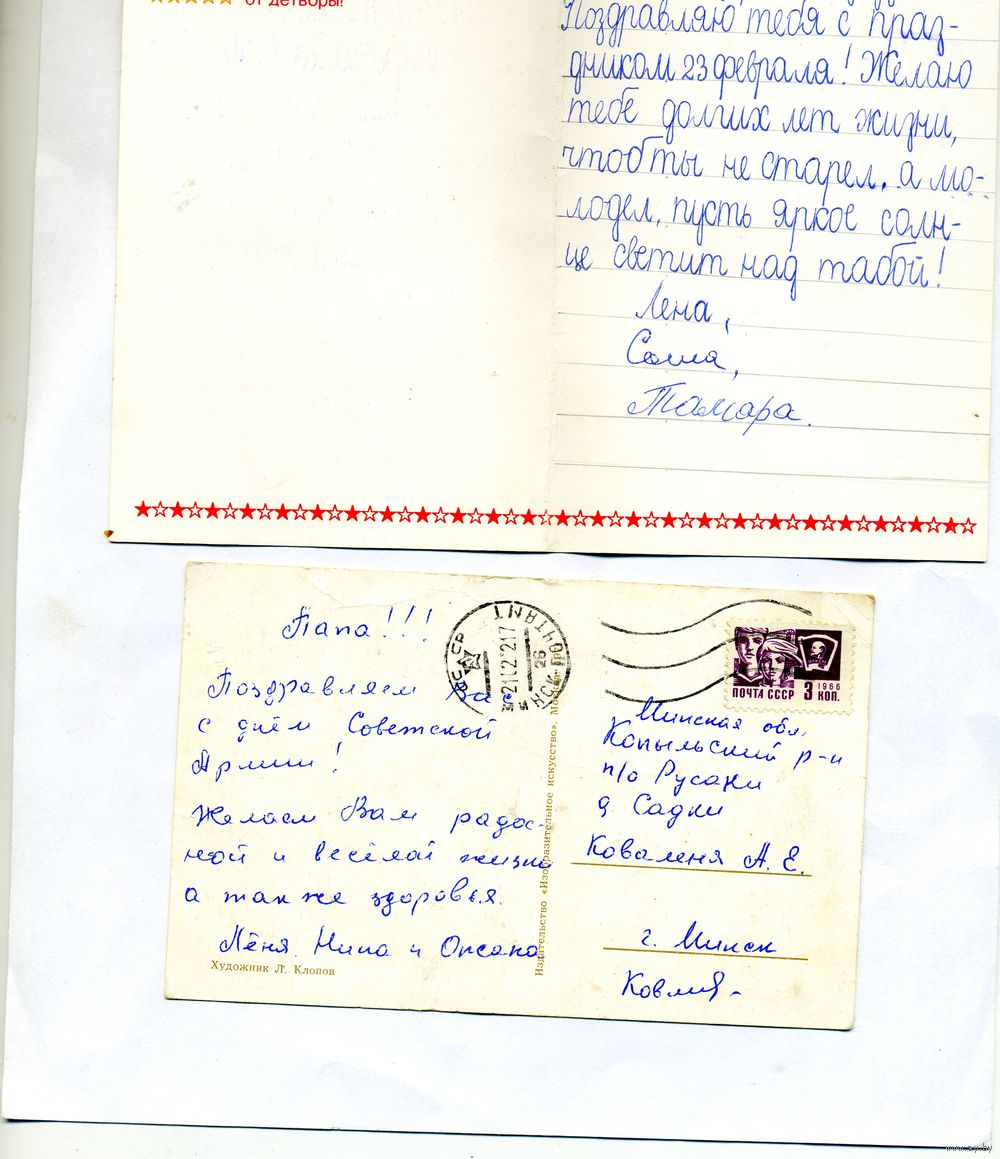 от детворы!
Поздравляю тебя с праз-
дником 23 февраля! Желаю
тебе долгих лет жизни,
чтоб ты не старел, а мо-
лодел, пусть яркое солн-
це светит над табой!
Лена,
Саша,
Тамара.
Папа!!!
Поздравляем Вас
с днём Советской
Армии!
Желаем Вам радос-
ной и весёлой жизни
а также здоровья.
Лёня, Нина и Оксана
Художник Л. Клопов
Издательство «Изобразительное искусство». Москва
ПОЧТАМТ
21 2 2217
26
ПОЧТА СССР 3 КОП.
1966
Минская обл.
Копыльский р-н
п/о Русаки
д Садки
Коваленя А. Е.
г. Минск
www.ay.by